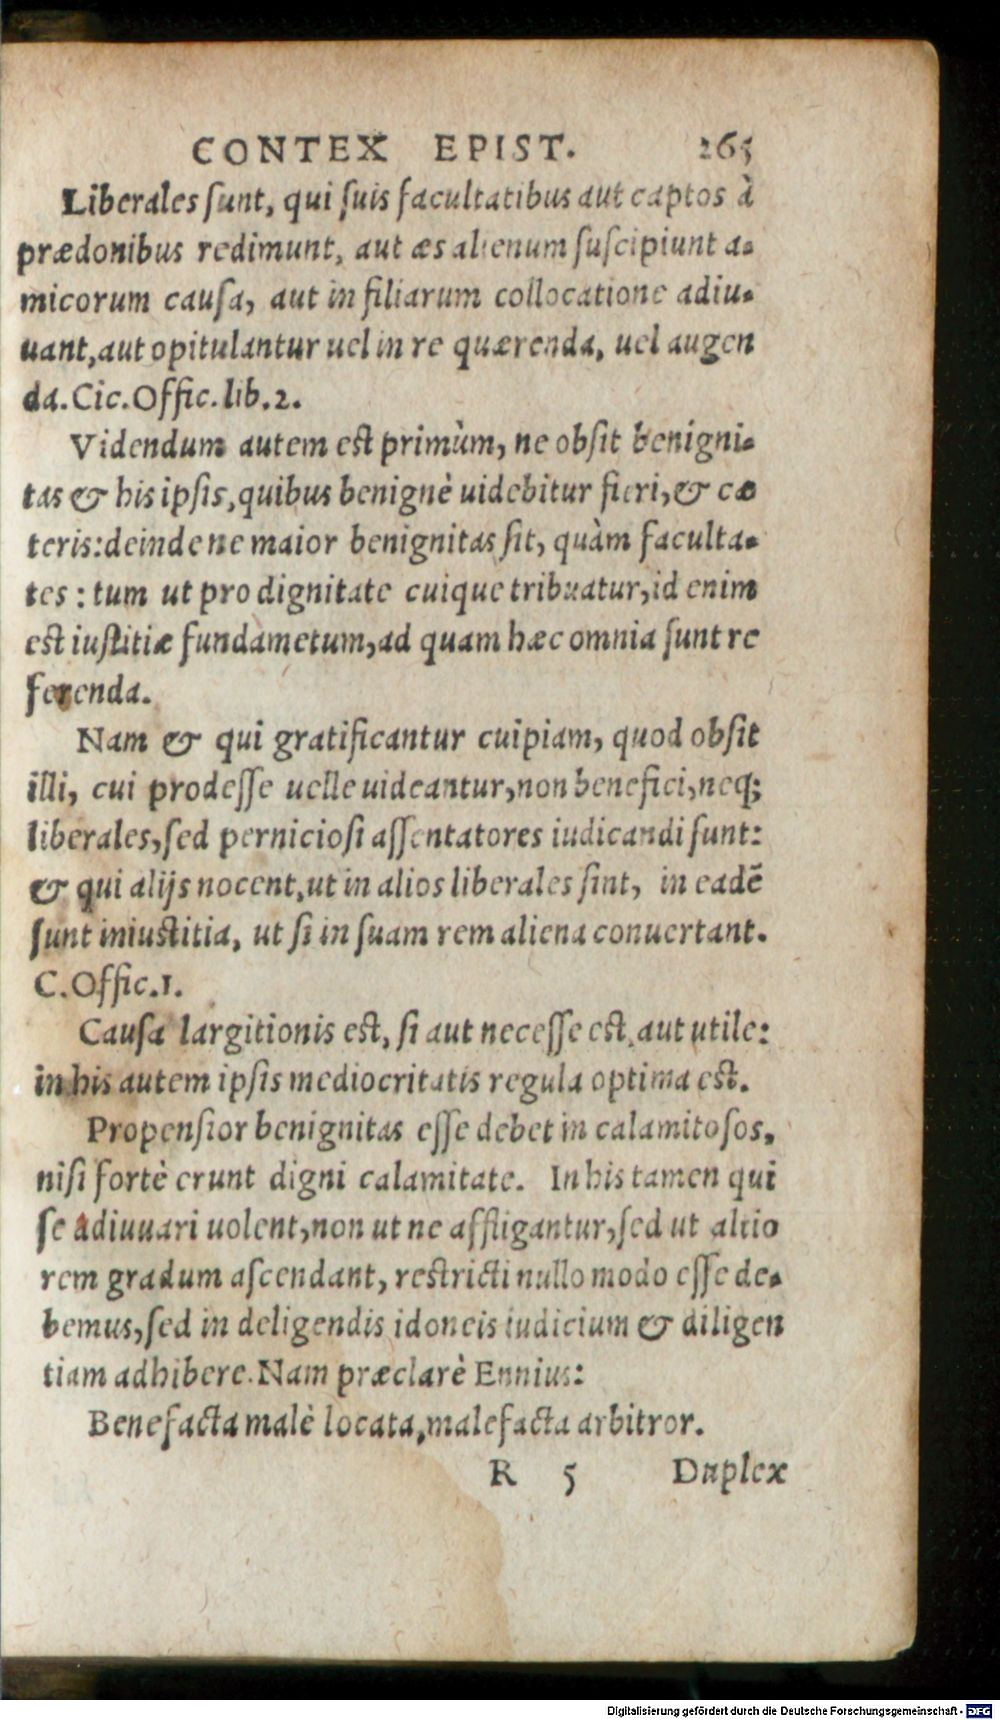 CONTEX EPIST. 265
Liberales sunt, qui suis facultatibus aut captos à
prædonibus redimunt, aut æs alienum suscipiunt a-
micorum causa, aut in filiarum collocatione adiu-
uant, aut opitulantur uel in re quærenda, uel augen
da. Cic. Offic. lib. 2.
Videndum autem est primùm, ne obsit benigni-
tas & his ipsis, quibus benignè uidebitur fieri, & cæ
teris: deinde ne maior benignitas sit, quàm faculta-
tes: tum ut pro dignitate cuique tribuatur, id enim
est iustitiæ fundametum, ad quam hæc omnia sunt re
ferenda.
Nam & qui gratificantur cuipiam, quod obsit
illi, cui prodesse uelle uideantur, non benefici, neq;
liberales, sed perniciosi assentatores iudicandi sunt:
& qui alijs nocent, ut in alios liberales sint, in eadē
sunt iniustitia, ut si in suam rem aliena conuertant.
C. Offic. 1.
Causa largitionis est, si aut necesse est, aut utile:
in his autem ipsis mediocritatis regula optima est.
Propensior benignitas esse debet in calamitosos,
nisi fortè erunt digni calamitate. In his tamen qui
se adiuuari uolent, non ut ne affligantur, sed ut altio
rem gradum ascendant, restricti nullo modo esse de-
bemus, sed in deligendis idoneis iudicium & diligen
tiam adhibere. Nam præclarè Ennius:
Benefacta malè locata, malefacta arbitror.
R 5 Duplex
Digitalisierung gefördert durch die Deutsche Forschungsgemeinschaft - DFG